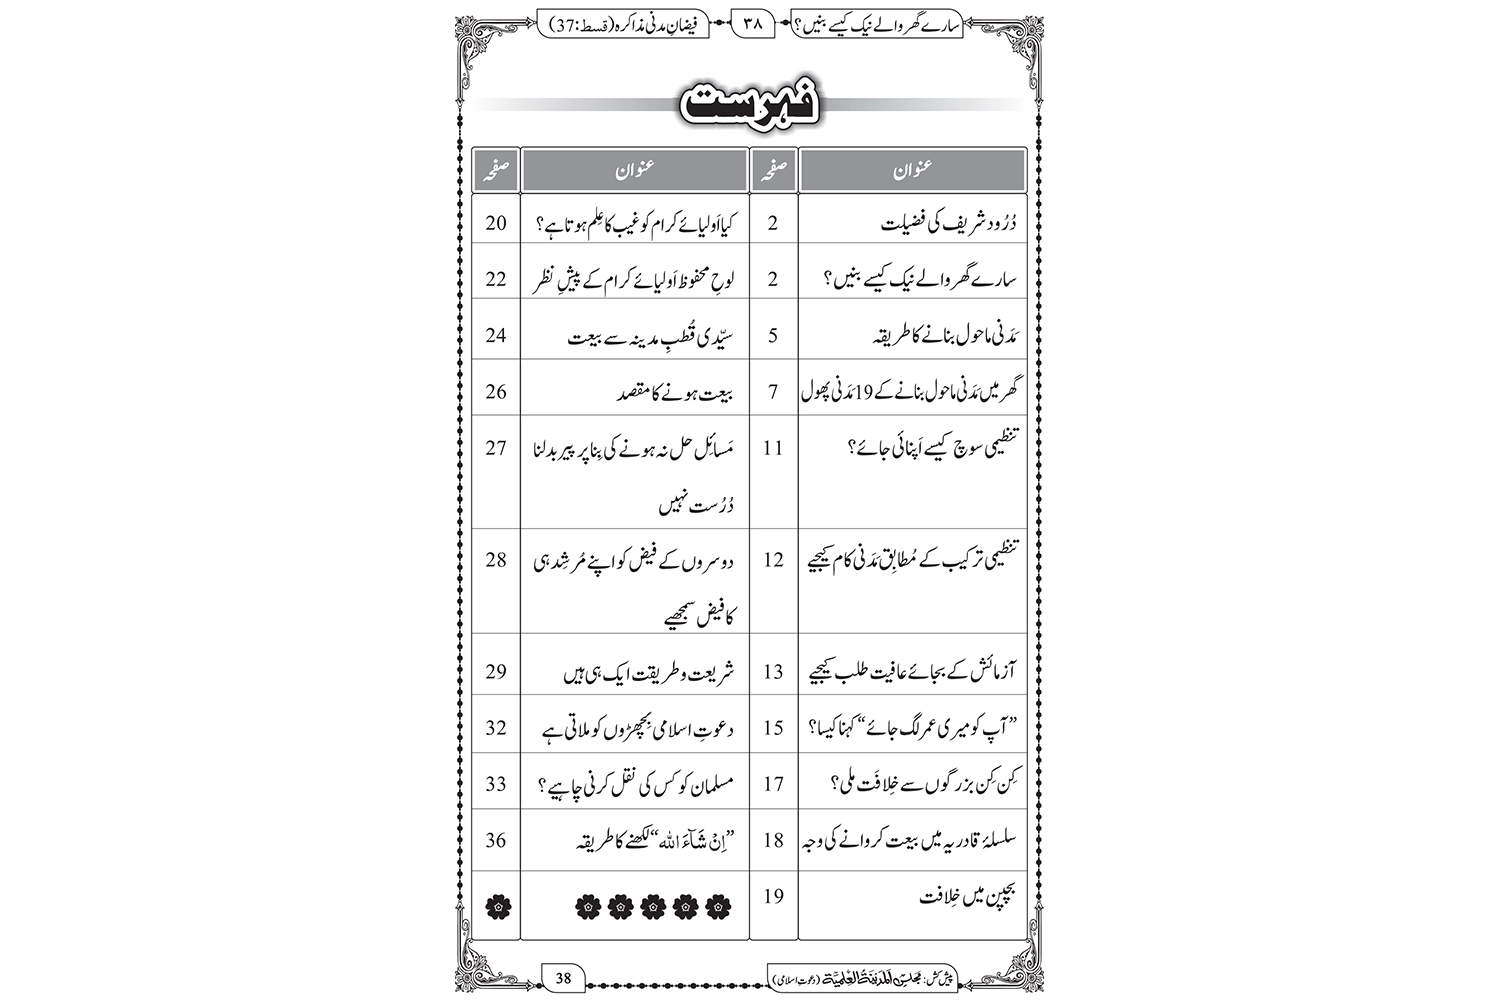 سارے گھر والے نیک کیسے بنیں؟ ۳۸ فیضانِ مدنی مذاکرہ (قسط:37)
فہرست
عنوان صفحہ عنوان صفحہ
دُرُود شریف کی فضیلت 2 کیا اَولیائے کرام کو غیب کا عِلم ہوتا ہے؟ 20
سارے گھر والے نیک کیسے بنیں؟ 2 لوحِ محفوظ اَولیائے کرام کے پیشِ نظر 22
مَدَنی ماحول بنانے کا طریقہ 5 سیّدی قُطبِ مدینہ سے بیعت 24
گھر میں مَدَنی ماحول بنانے کے 19 مَدَنی پھول 7 بیعت ہونے کا مقصد 26
تنظیمی سوچ کیسے اَپنائی جائے؟ 11 مَسائِل حل نہ ہونے کی بِنا پر پیر بدلنا 27
دُرُست نہیں
تنظیمی ترکیب کے مُطابِق مَدَنی کام کیجیے 12 دوسروں کے فیض کو اپنے مُرشِد ہی 28
کا فیض سمجھیے
آزمائش کے بجائے عافیت طلب کیجیے 13 شریعت و طریقت ایک ہی ہیں 29
”آپ کو میری عمر لگ جائے“ کہنا کیسا؟ 15 دعوتِ اسلامی بِچھڑوں کو ملاتی ہے 32
کِن کِن بزرگوں سے خِلافَت ملی؟ 17 مسلمان کو کس کی نقل کرنی چاہیے؟ 33
سلسلۂ قادریہ میں بیعت کروانے کی وجہ 18 ”اِنْ شَآءَ اللہ“ لکھنے کا طریقہ 36
بچپن میں خِلافت 19
پیش کش: مجلس المدینۃ العلمیۃ (دعوتِ اسلامی) 38